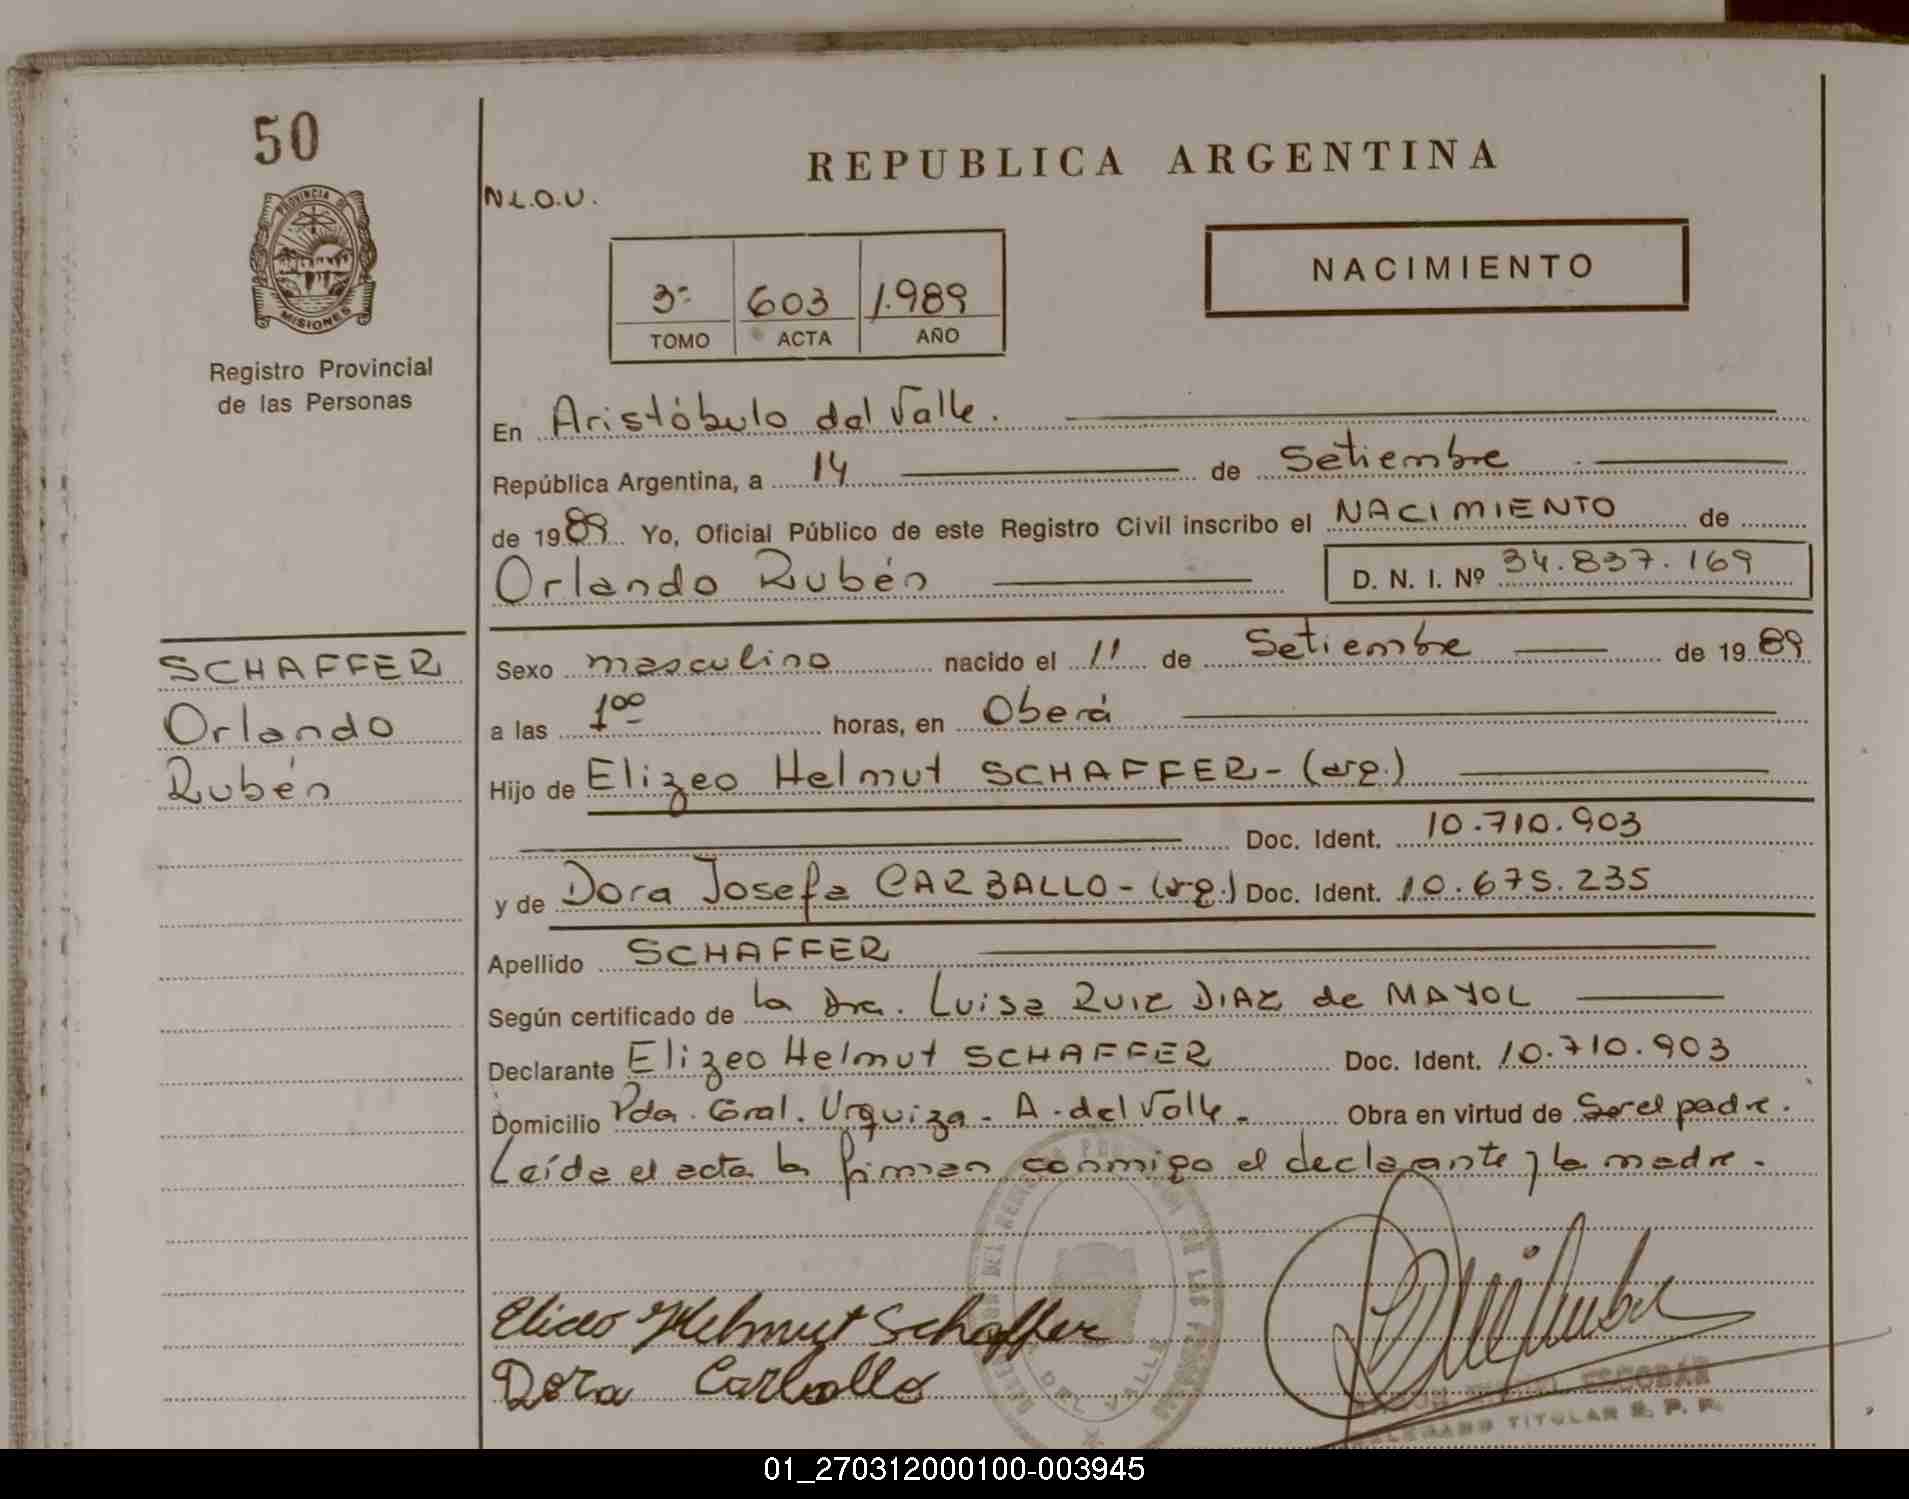 50
REPUBLICA ARGENTINA
N.L.O.U.
PROVINCIA DE
MISIONES
Registro Provincial
de las Personas
NACIMIENTO
3º 603 1.989
TOMO ACTA AÑO
En Aristóbulo del Valle.
República Argentina, a 14 de Setiembre
de 1989 Yo, Oficial Público de este Registro Civil inscribo el NACIMIENTO de
Orlando Rubén D. N. I. Nº 34.837.169
SCHAFFER
Orlando
Rubén
Sexo masculino nacido el 11 de Setiembre de 1989
a las 100 horas, en Oberá
Hijo de Elizeo Helmut SCHAFFER - (arg.)
Doc. Ident. 10.710.903
y de Dora Josefa CARBALLO - (arg.) Doc. Ident. 10.675.235
Apellido SCHAFFER
Según certificado de la Dra. Luisa RUIZ DIAZ de MAYOL
Declarante Elizeo Helmut SCHAFFER Doc. Ident. 10.710.903
Domicilio Pda. Gral. Urquiza - A. del Valle - Obra en virtud de Ser el padre.
Leída el acta la firman conmigo el declarante y la madre.
Eliceo Helmut Schaffer
Dora Carballo
DEL VALLE
ESCOBAR
TITULAR R. P. P.
01_270312000100-003945